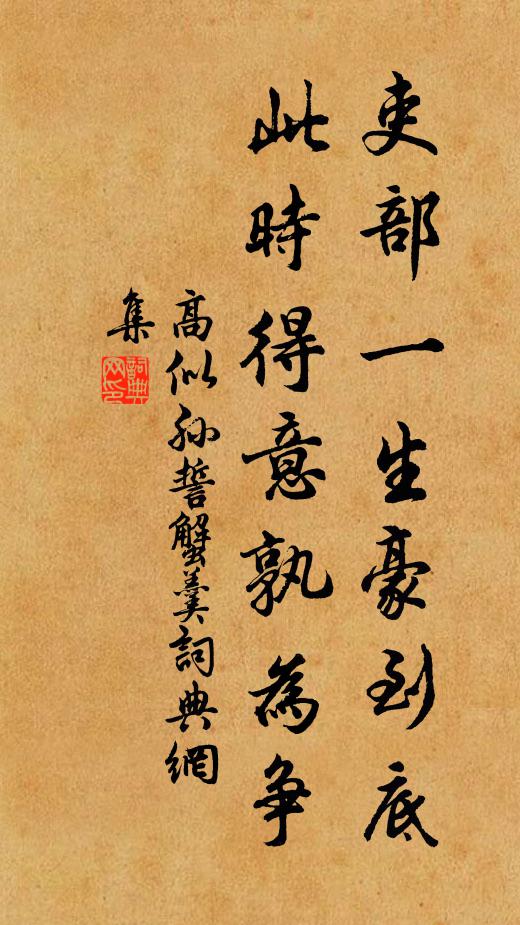 吏部一生豪到底
此時得意孰為争
高似孙誓蟹羹詞典網
集
詞典
网印